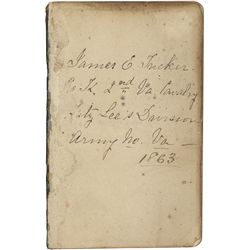 James E. Tucker
Co K. 2nd Va. Cavalry
Fitz Lee's Division
Army No. Va —
1863